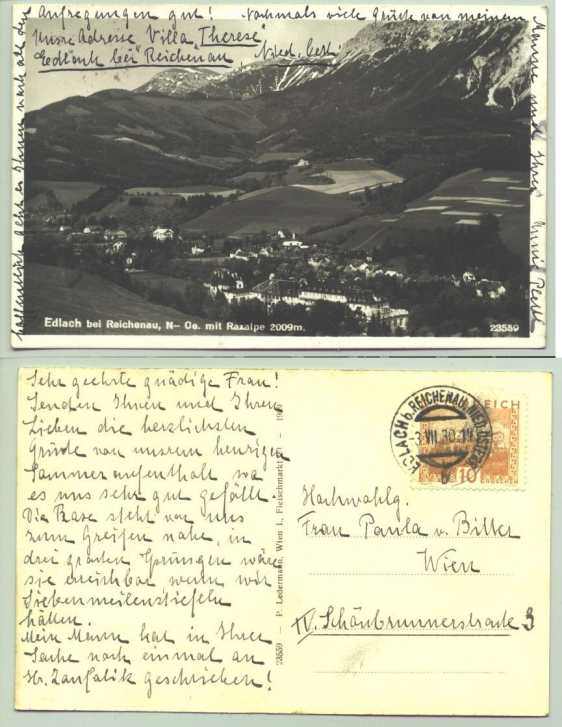 Aufregungen gut! Nochmals viele Grüße von meinem
Manne und Ihrer
Unsre Adresse Villa "Therese"
Edlach bei Reichenau, Nied. Oest.
hoffentlich geht es Ihnen nach all den
Edlach bei Reichenau, N-Oe. mit Raxalpe 2009m.
23559
Sehr geehrte gnädige Frau!
Senden Ihnen und Ihren
Lieben die herzlichsten
Grüße von unserem heurigen
Sommeraufenthalt wo
es uns sehr gut gefällt.
Die Raxe steht vor uns
zum Greifen nahe, in
drei großen Sprüngen wäre
sie erreichbar wenn wir
Siebenmeilenstiefeln
hätten.
Mein Mann hat in Ihrer
Sache noch einmal an
geschrieben!
23559 — P. Ledermann, Wien I., Fleischmarkt
EDLACH b. REICHENAU, NIED. ÖSTER.
-3.VII.30
REICH
10
Hochwohlg.
Frau Paula v. Bitter
Wien
IV. Schönbrunnerstraße 3